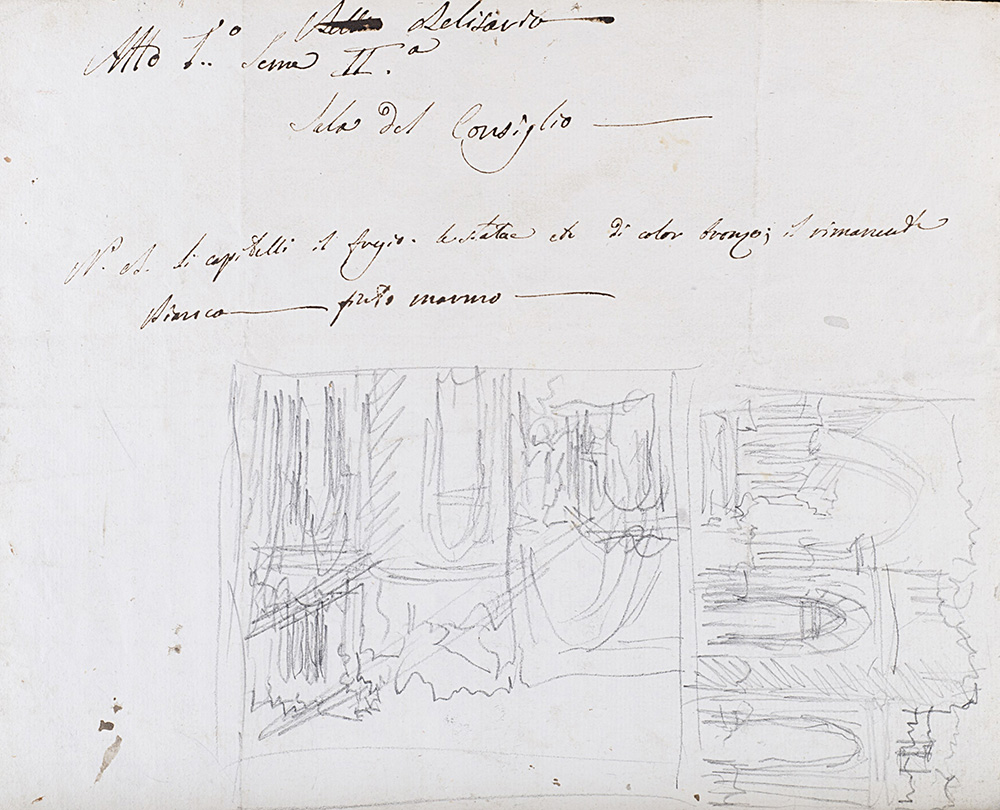 Belisario
Atto I.º Scena II.ª
Sala del Consiglio
N. B. Li capitelli il fregio. le statue di color bronzo; il rimanente
Bianco finto marmo